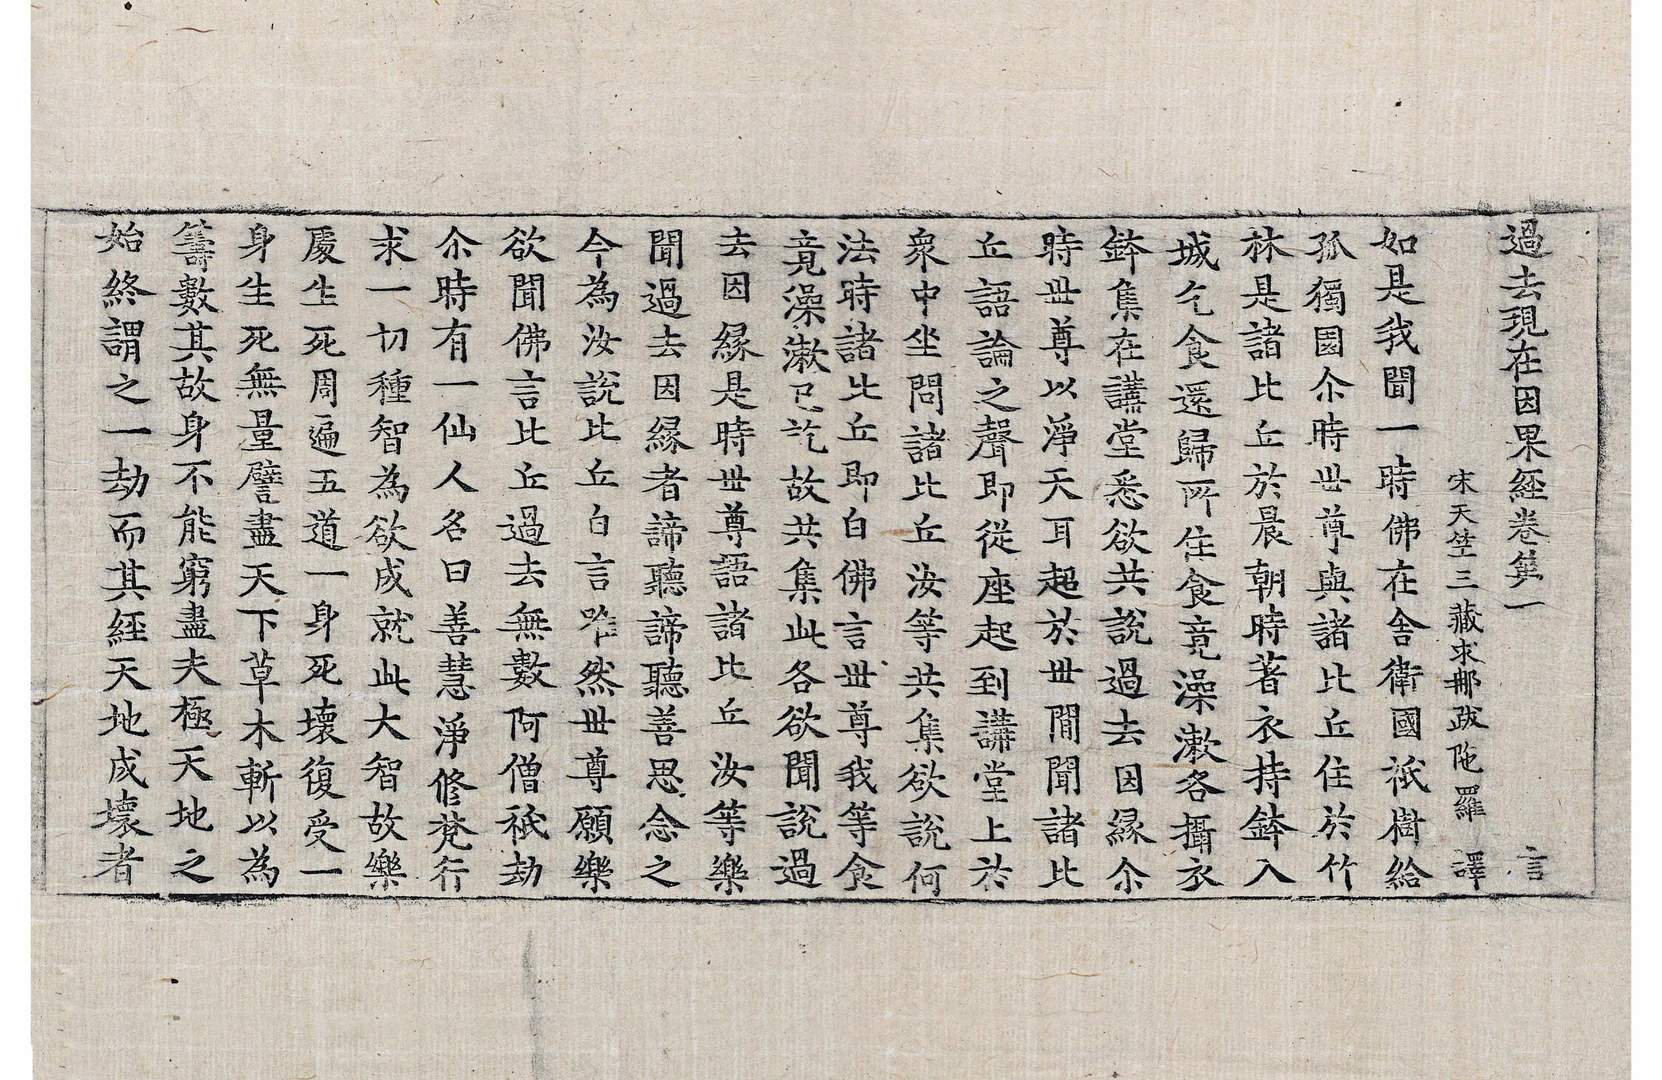 過去現在因果經卷苐一 言
宋天竺三藏求那跋陁羅 譯
如是我聞一時佛在舍衛國祇樹給
孤獨國尒時世尊與諸比丘住於竹
林是諸比丘於晨朝時著衣持鉢入
城乞食還歸所住食竟澡漱各攝衣
鉢集在講堂悉欲共說過去因緣尒
時世尊以淨天耳超於世間聞諸比
丘語論之聲即從座起到講堂上於
衆中坐問諸比丘汝等共集欲說何
法時諸比丘即白佛言世尊我等食
竟澡漱已訖故共集此各欲聞說過
去因緣是時世尊語諸比丘汝等樂
聞過去因緣者諦聽諦聽善思念之
今為汝說比丘白言唯然世尊願樂
欲聞佛言比丘過去無數阿僧祇劫
尒時有一仙人名曰善慧淨修梵行
求一切種智為欲成就此大智故樂
處生死周遍五道一身死壞復受一
身生死無量譬盡天下草木斬以為
籌數其故身不能窮盡夫極天地之
始終謂之一劫而其經天地成壞者